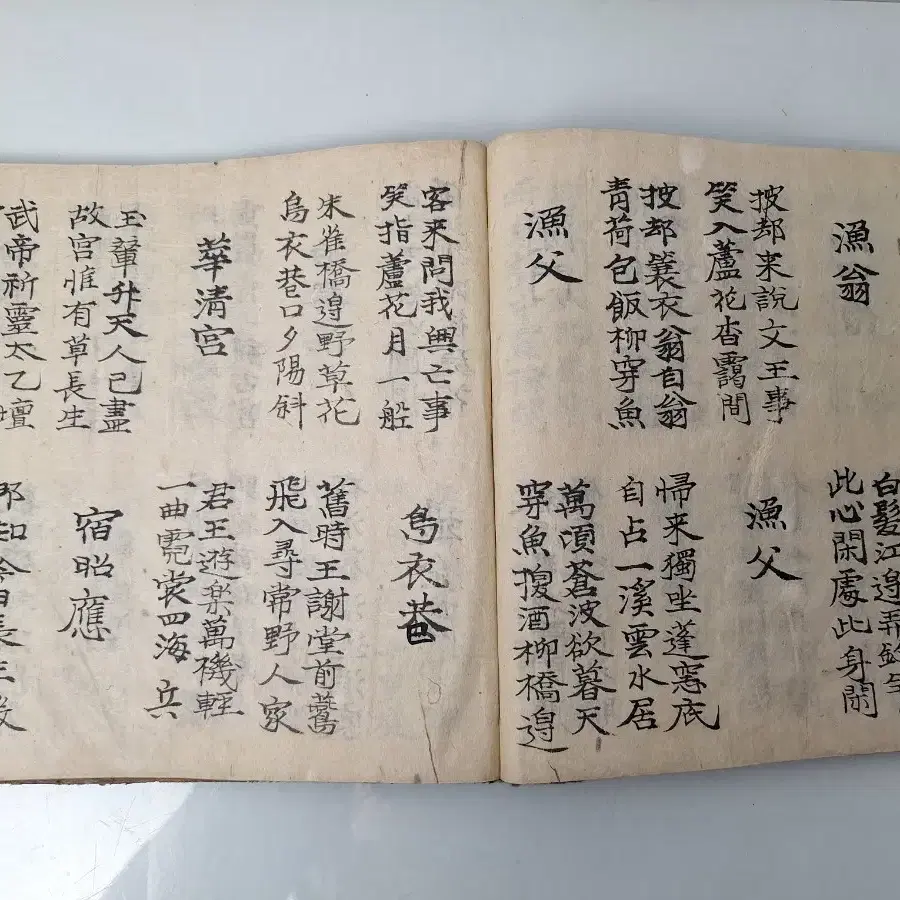 漁翁
白髮江邉弄
此心閑處此身閑
披却来說文王事
笑入蘆花杳靄間
漁父
披却簑衣翁自翁
青荷包飯柳穿魚
帰来獨坐蓬窓底
自占一溪雲水居
漁父
萬頃蒼波欲暮天
穿魚換酒柳橋邉
客来問我興亡事
笑指蘆花月一船
烏衣巷
朱雀橋邉野草花
烏衣巷口夕陽斜
舊時王謝堂前鷰
飛入尋常野人家
華清宮
君王遊楽萬機輕
一曲霓裳四海兵
玉輦升天人已盡
故宮惟有草長生
宿昭應
武帝祈靈太乙壇
那知今日長生殿